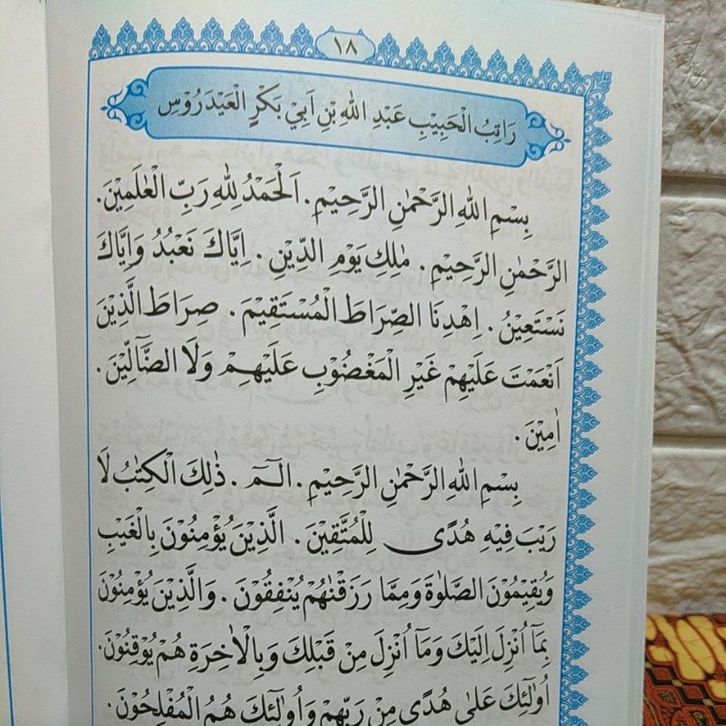 ١٨
رَاتِبُ الْحَبِيْبِ عَبْدِ اللهِ بْنِ اَبِيْ بَكْرٍ الْعَيْدَرُوْسِ
بِسْمِ اللهِ الرَّحْمٰنِ الرَّحِيْمِ. اَلْحَمْدُ لِلّٰهِ رَبِّ الْعٰلَمِيْنَ.
الرَّحْمٰنِ الرَّحِيْمِ. مٰلِكِ يَوْمِ الدِّيْنِ. اِيَّاكَ نَعْبُدُ وَاِيَّاكَ
نَسْتَعِيْنُ. اِهْدِنَا الصِّرَاطَ الْمُسْتَقِيْمَ. صِرَاطَ الَّذِيْنَ
اَنْعَمْتَ عَلَيْهِمْ غَيْرِ الْمَغْضُوْبِ عَلَيْهِمْ وَلَا الضَّآلِّيْنَ.
اٰمِيْنَ.
بِسْمِ اللهِ الرَّحْمٰنِ الرَّحِيْمِ. الٓـمٓ. ذٰلِكَ الْكِتٰبُ لَا
رَيْبَ فِيْهِ هُدًى لِلْمُتَّقِيْنَ. الَّذِيْنَ يُؤْمِنُوْنَ بِالْغَيْبِ
وَيُقِيْمُوْنَ الصَّلٰوةَ وَمِمَّا رَزَقْنٰهُمْ يُنْفِقُوْنَ. وَالَّذِيْنَ يُؤْمِنُوْنَ
بِمَآ اُنْزِلَ اِلَيْكَ وَمَآ اُنْزِلَ مِنْ قَبْلِكَ وَبِالْاٰخِرَةِ هُمْ يُوْقِنُوْنَ.
اُولٰٓئِكَ عَلٰى هُدًى مِنْ رَبِّهِمْ وَاُولٰٓئِكَ هُمُ الْمُفْلِحُوْنَ.